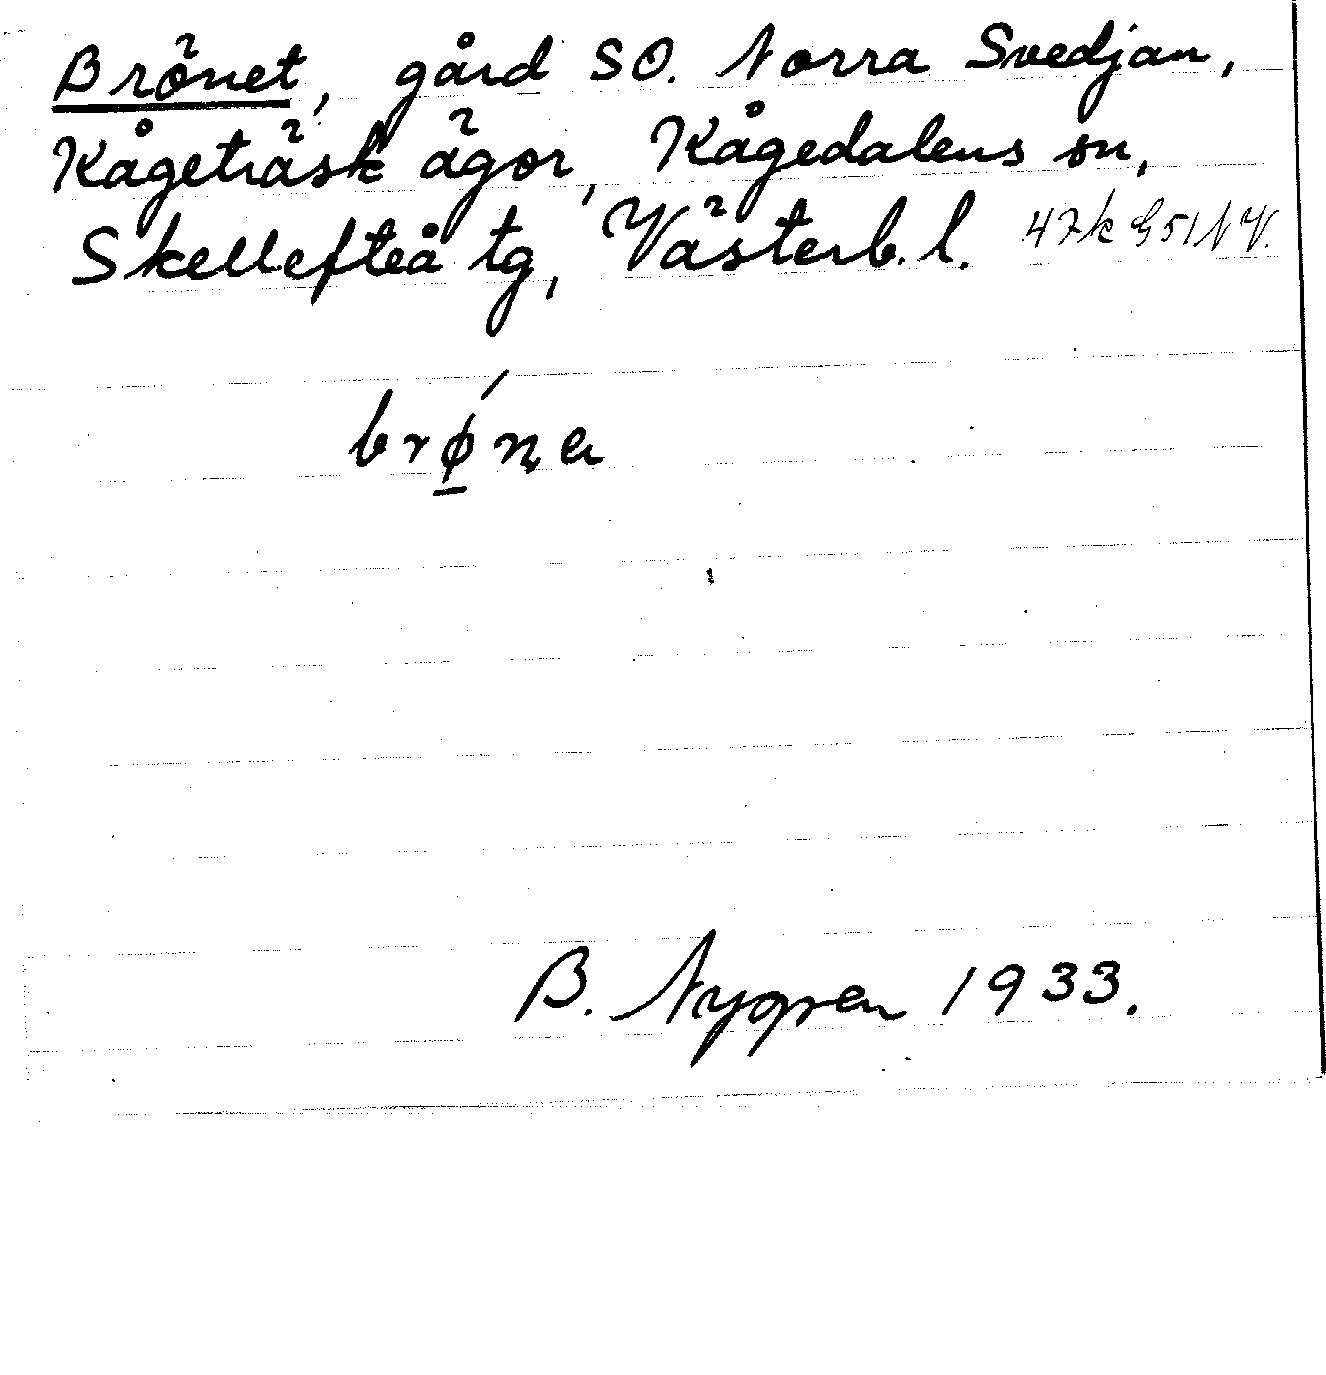 Brönet, gård SO. Norra Svedjan,
Kågeträsk ägor, Kågedalens sn,
Skellefteå tg, Västerb. l. 47k G51NV.
brǿ̲na
B. Nygren 1933.